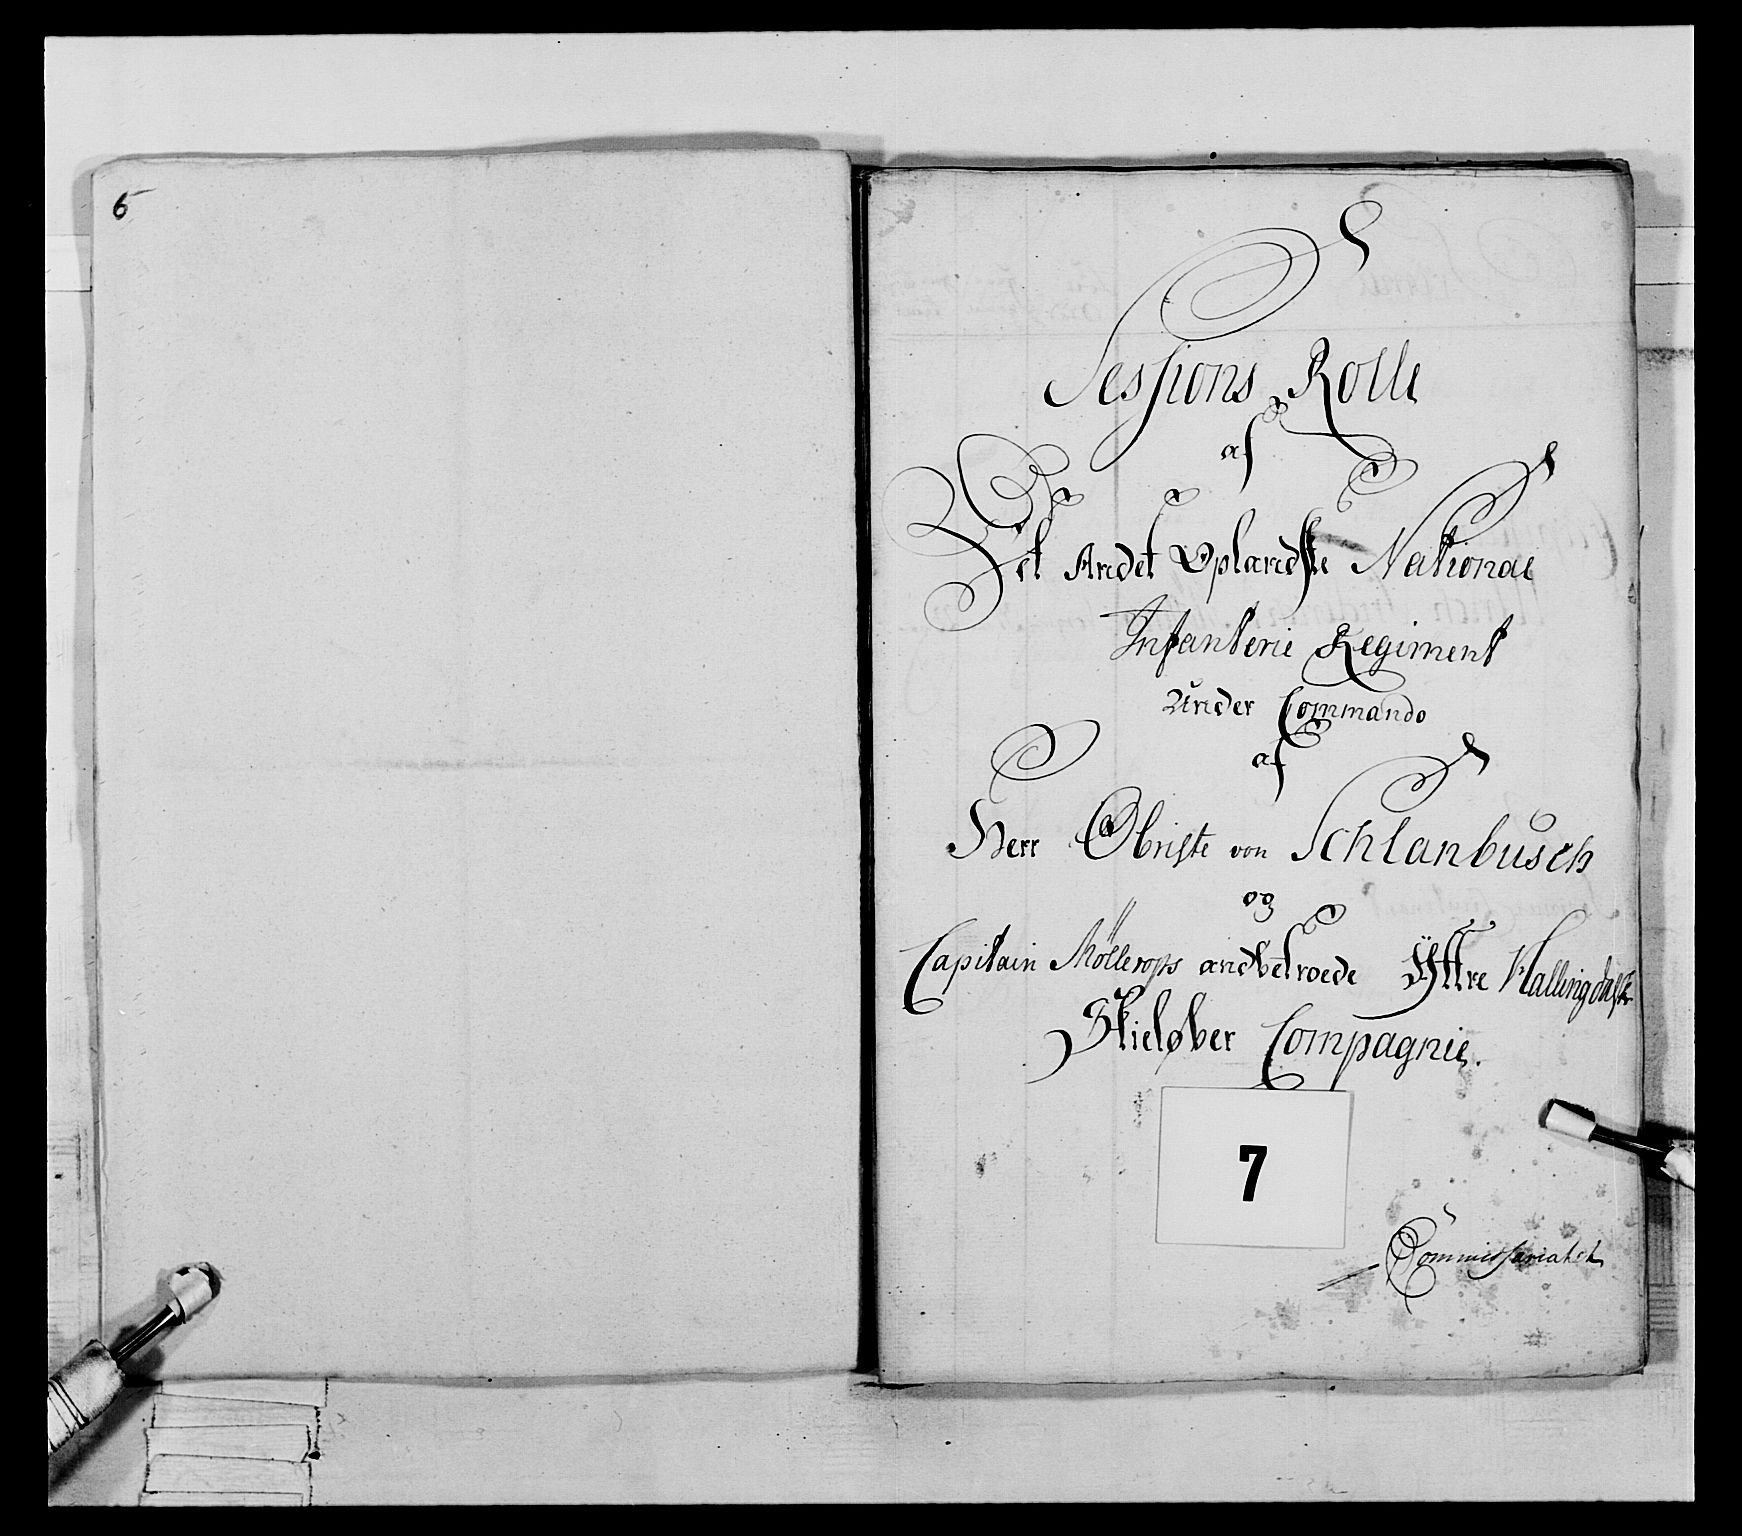 6
Sessions Rolle
af
Det Andet Oplandske National
Infanterie Regiment
Under Commando
af
Herr Obriste von Schlanbusch
og
Capitain Möllerops andbetroede Ÿttre Hallingdalske
Skieløber Compagnie.
7